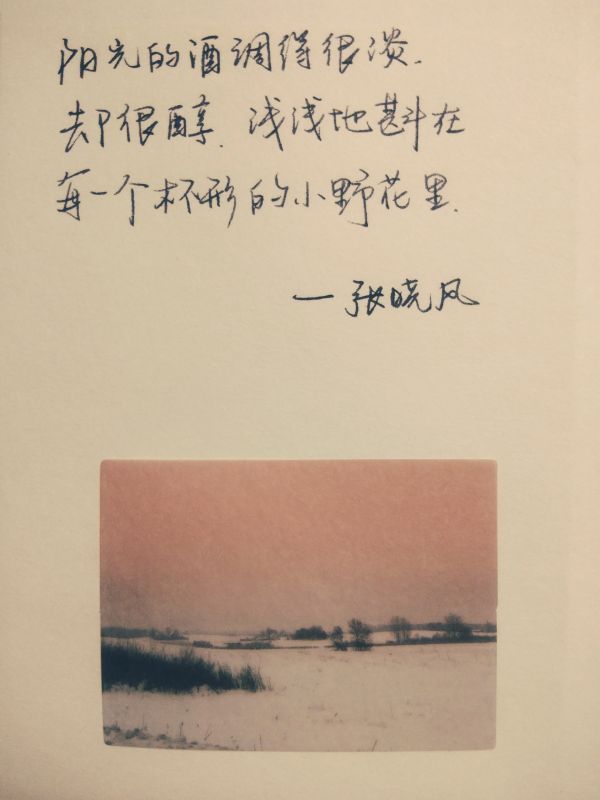 阳光的酒调得很淡.
却很醇.浅浅地斟在
每一个杯形的小野花里.
—张晓风